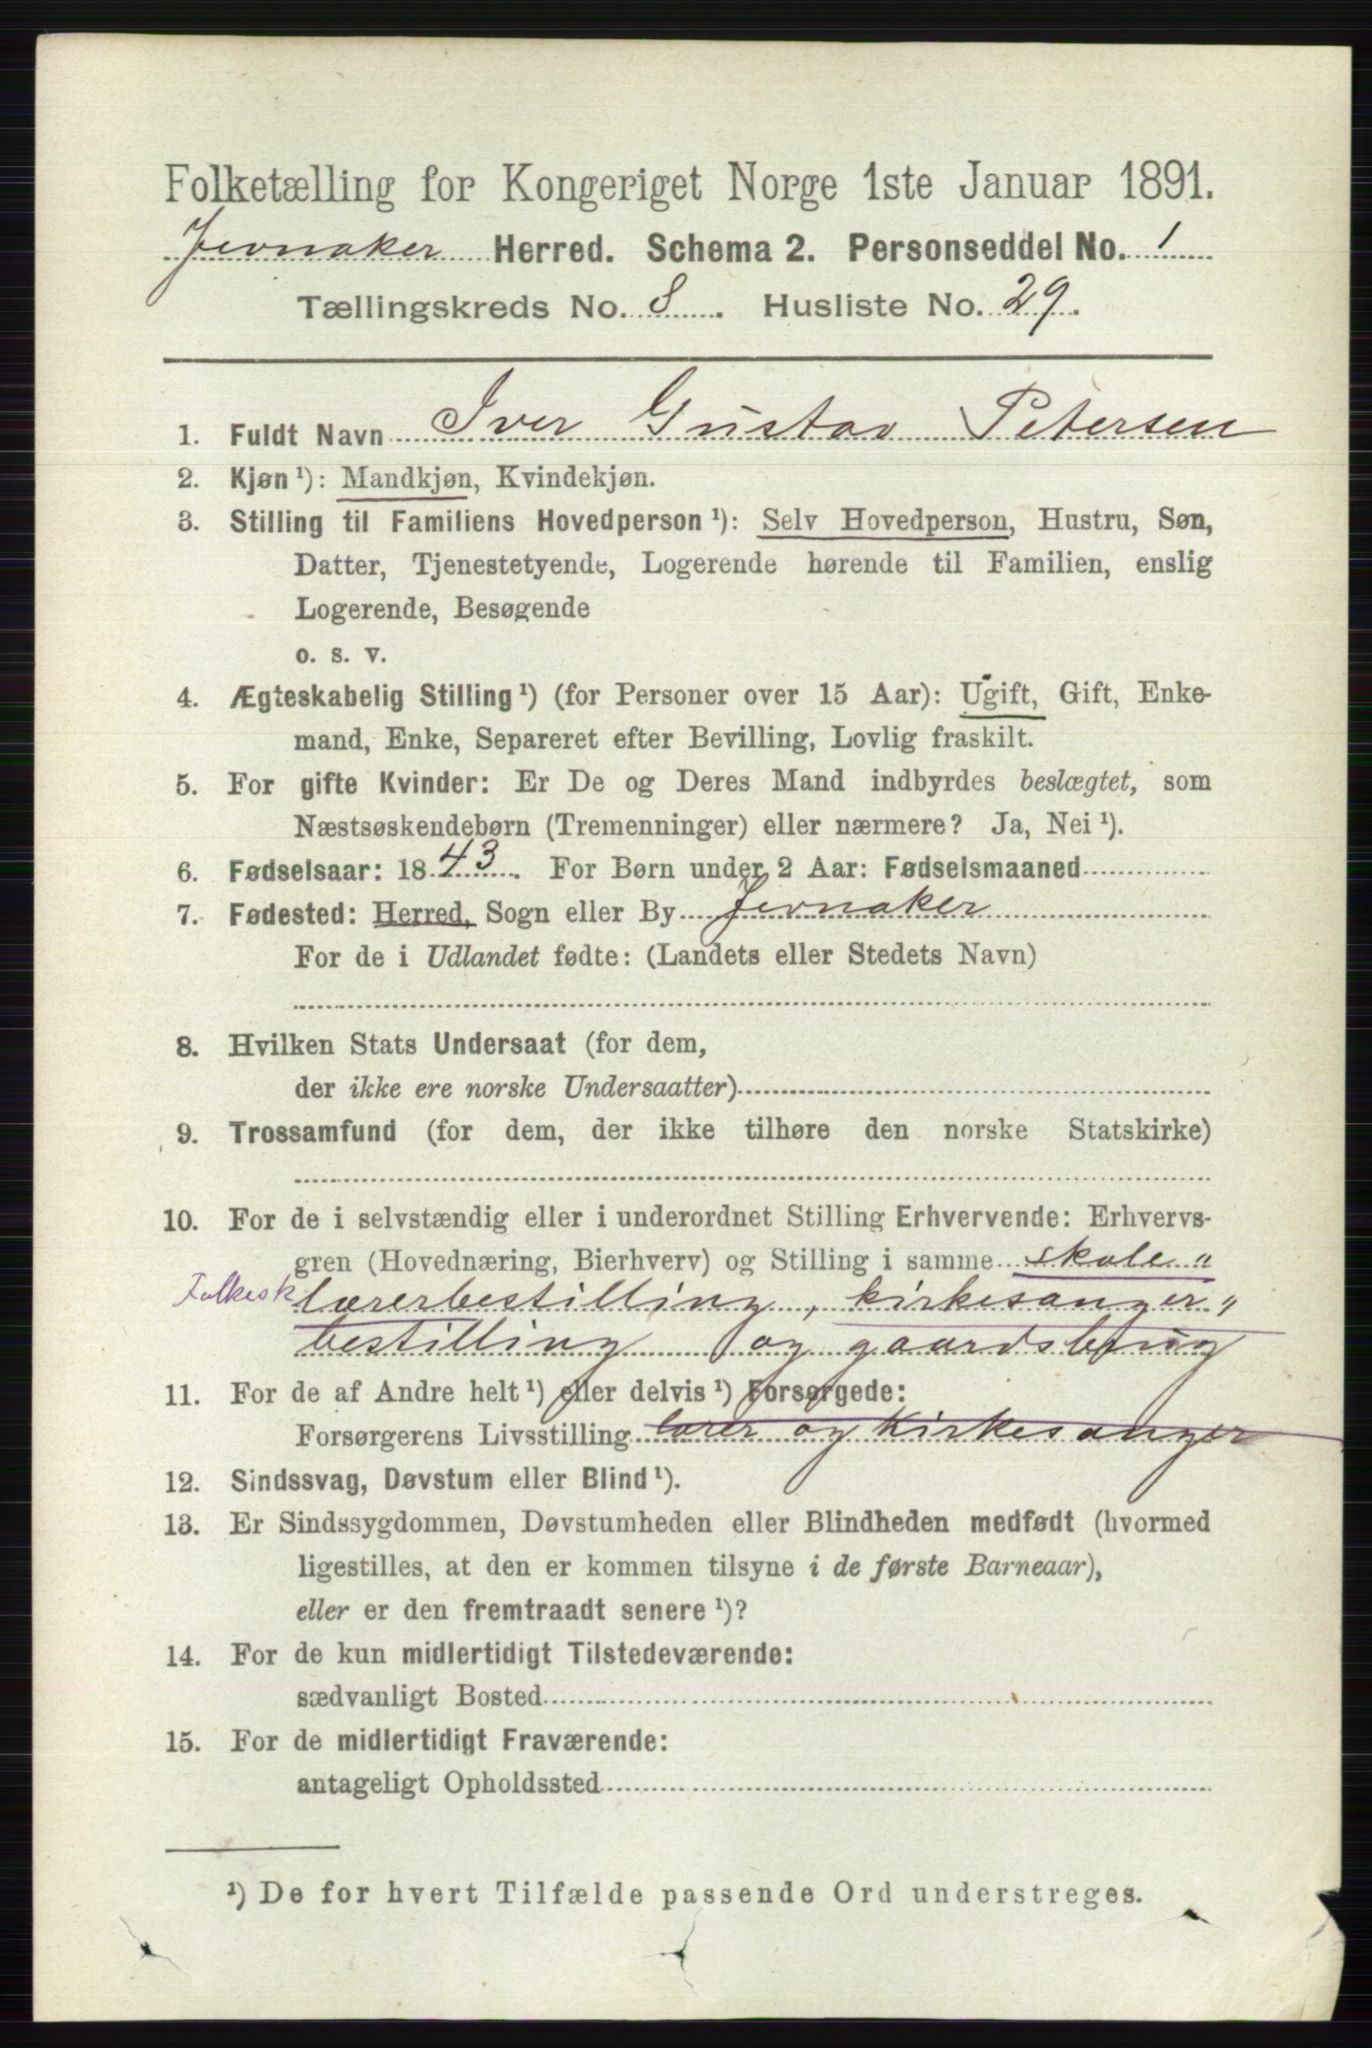 Folketælling for Kongeriget Norge 1ste Januar 1891.
Jevnaker Herred. Schema 2. Personseddel No. 1
Tællingskreds No. 8. Husliste No. 29.
1. Fuldt Navn Iver Gustav Petersen
2. Kjøn ¹): Mandkjøn, Kvindekjøn.
3. Stilling til Familiens Hovedperson ¹): Selv Hovedperson, Hustru, Søn,
Datter, Tjenestetyende, Logerende hørende til Familien, enslig
Logerende, Besøgende
o. s. v.
4. Ægteskabelig Stilling ¹) (for Personer over 15 Aar): Ugift, Gift, Enke-
mand, Enke, Separeret efter Bevilling, Lovlig fraskilt.
5. For gifte Kvinder: Er De og Deres Mand indbyrdes beslægtet, som
Næstsøskendebørn (Tremenninger) eller nærmere? Ja, Nei ¹).
6. Fødselsaar: 1843. For Børn under 2 Aar: Fødselsmaaned
7. Fødested: Herred, Sogn eller By Jevnaker
For de i Udlandet fødte: (Landets eller Stedets Navn)
8. Hvilken Stats Undersaat (for dem,
der ikke ere norske Undersaatter)
9. Trossamfund (for dem, der ikke tilhøre den norske Statskirke)
10. For de i selvstændig eller i underordnet Stilling Erhvervende: Erhvervs-
gren (Hovednæring, Bierhverv) og Stilling i samme skole„
Folkesk lærerbestilling, kirkesanger„
bestilling og gaardsbrug
11. For de af Andre helt ¹) eller delvis ¹) Forsørgede:
Forsørgerens Livsstilling lærer og Kirkesanger
12. Sindssvag, Døvstum eller Blind ¹).
13. Er Sindssygdommen, Døvstumheden eller Blindheden medfødt (hvormed
ligestilles, at den er kommen tilsyne i de første Barneaar),
eller er den fremtraadt senere ¹)?
14. For de kun midlertidigt Tilstedeværende:
sædvanligt Bosted
15. For de midlertidigt Fraværende:
antageligt Opholdssted
¹) De for hvert Tilfælde passende Ord understreges.